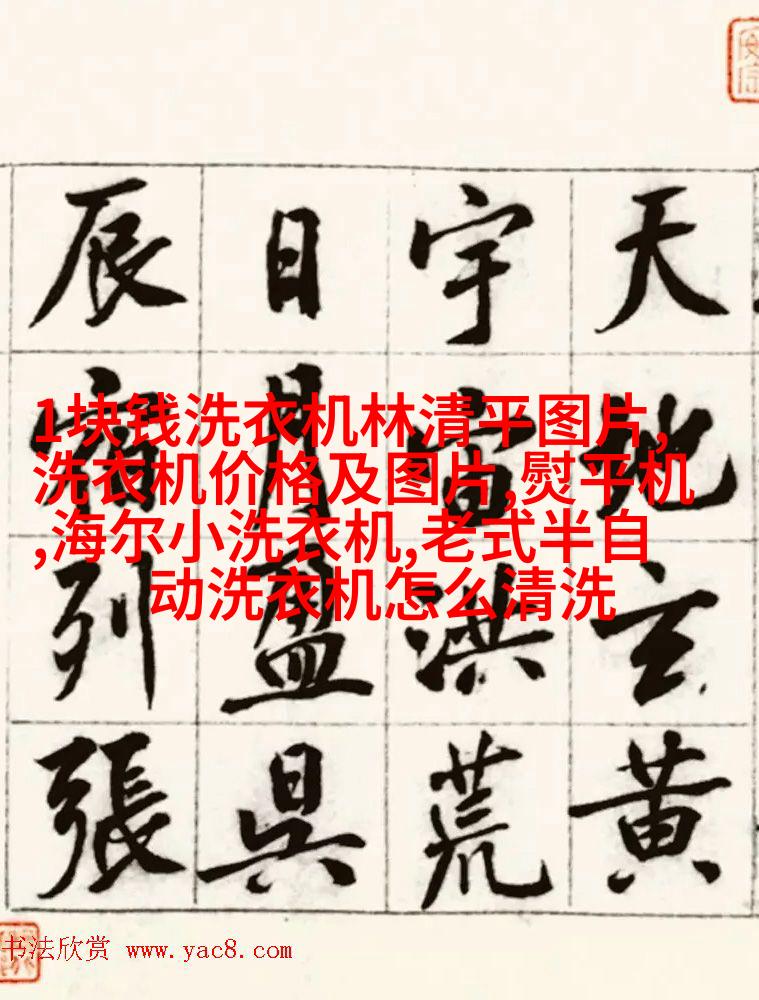 天地玄黄
宇宙洪荒
日月盈昃
辰宿列張
1块钱洗衣机林清平图片,
洗衣机价格及图片,熨平机
,海尔小洗衣机,老式半自
动洗衣机怎么清洗
书法欣赏 www.yac8.com